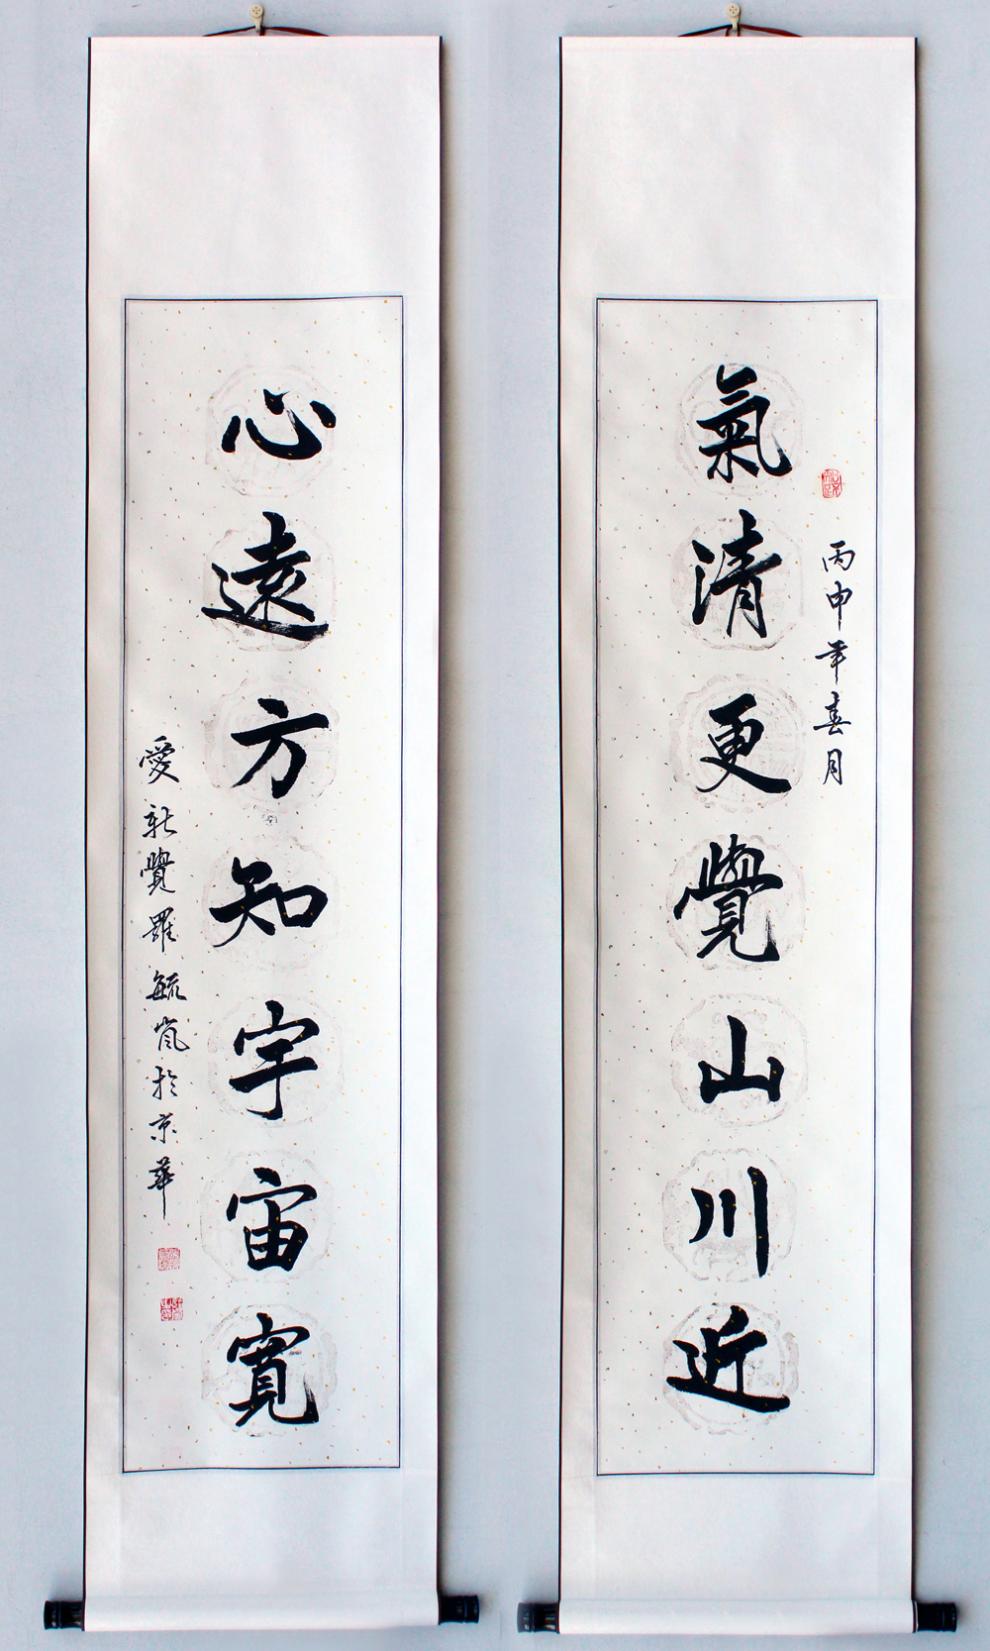 丙申年春月
氣清更覺山川近
心遠方知宇宙寬
愛新覺羅毓嵐於京華